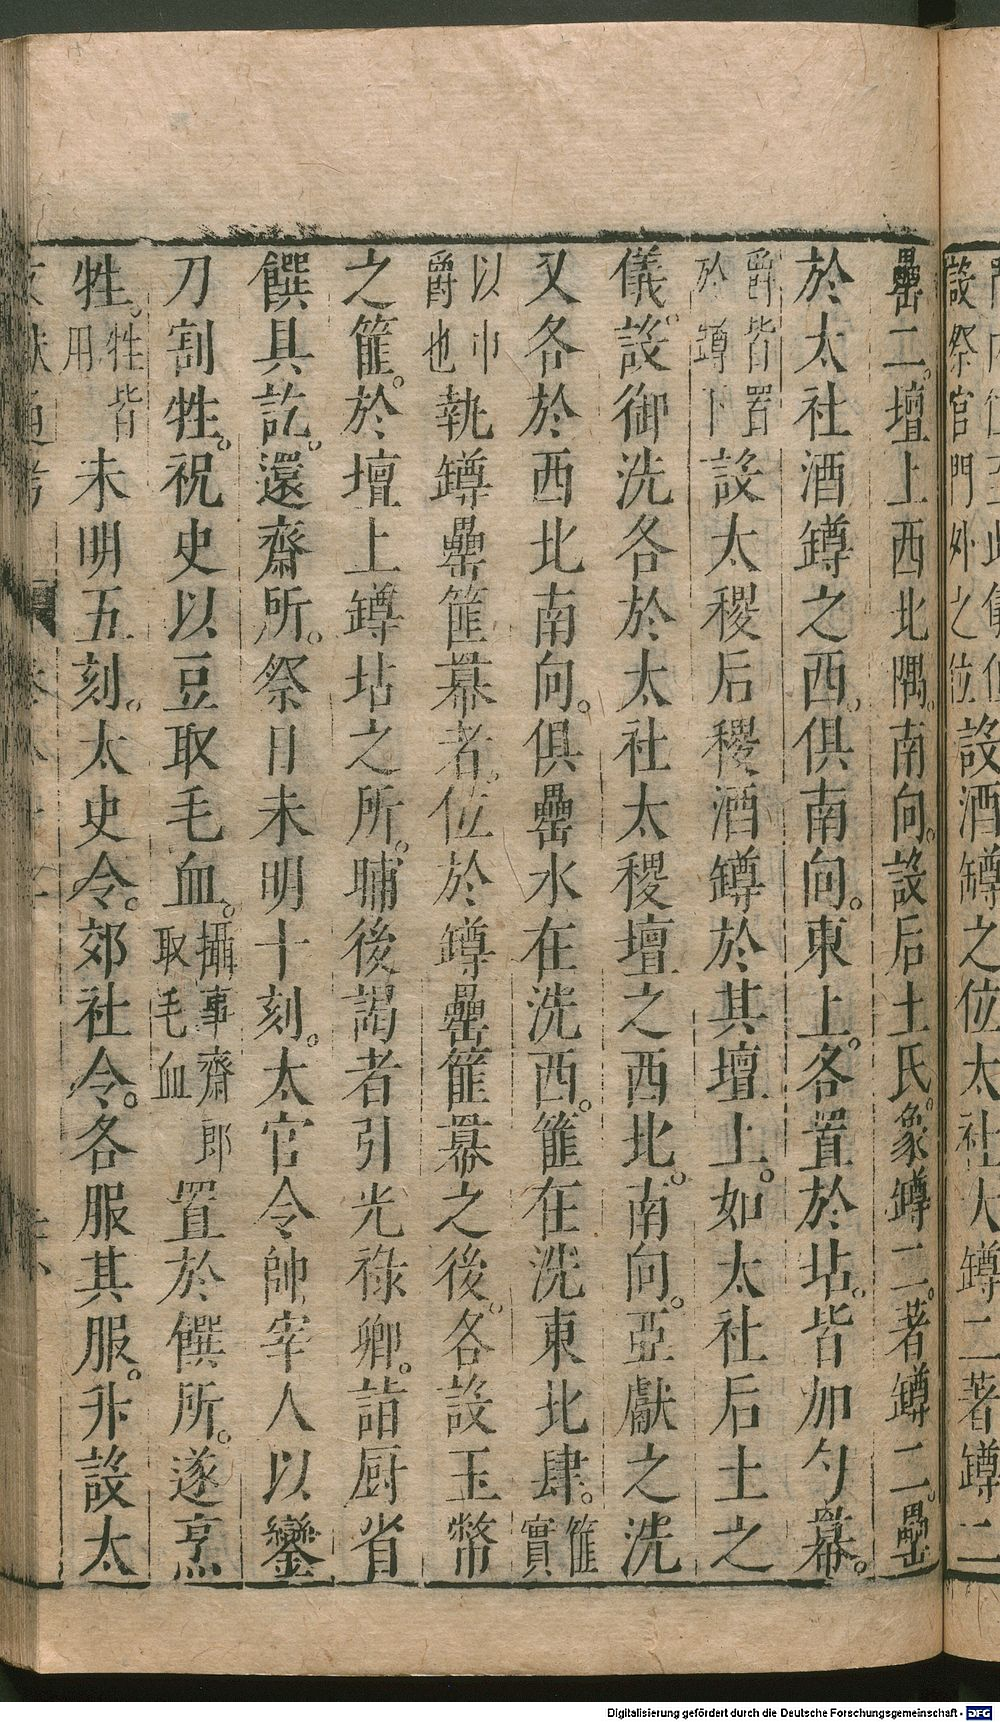 設祭官門外之位設酒罇之位太社大罇二著罇二
罍二。壇上西北隅。南向。設后土氏。象罇二。著罇二。罍
於太社酒罇之西。俱南向。東上。各置於坫。皆加勺冪。
爵皆置於罇下設太稷后稷酒罇於其壇上。如太社后土之
儀。設御洗各於太社太稷壇之西北。南向。亞獻之洗
又各於西北南向。俱罍水在洗西。篚在洗東北肆。篚實
以巾爵也執罇罍篚冪者。位於罇罍篚冪之後。各設玉幣
之篚。於壇上罇坫之所。晡後謁者引光祿卿。詣厨省
饌具訖。還齋所。祭日未明十刻。太官令帥宰人以鑾
刀割牲。祝史以豆取毛血。攝事齋郎取毛血置於饌所。遂烹
牲。牲皆用未明五刻。太史令。郊社令。各服其服。升設太
Digitalisierung gefördert durch die Deutsche Forschungsgemeinschaft - DFG